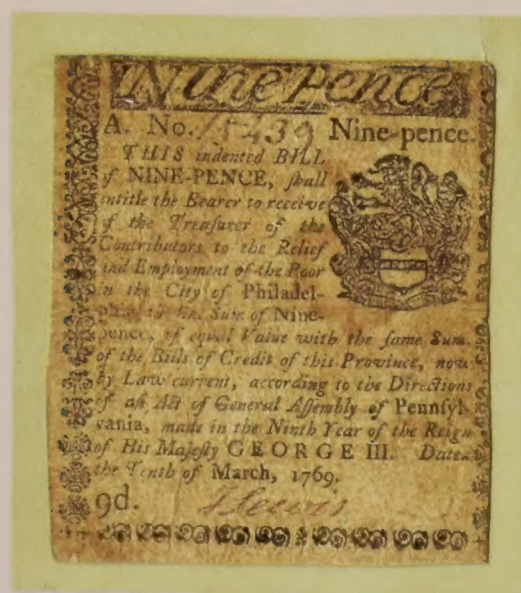 Nine Pence
A. No. 15439 Nine-pence.
THIS indented BILL
of NINE-PENCE, ſhall
entitle the Bearer to receive
of the Treaſurer of the
Contributors to the Relief
and Employment of the Poor
in the City of Philadel-
phia, the Sum of Nine-
pence, of equal Value with the ſame Sum
of the Bills of Credit of this Province, now
by Law current, according to the Directions
of an Act of General Aſſembly of Pennſyl-
vania, made in the Ninth Year of the Reign
of His Majeſty GEORGE III. Dated
the Tenth of March, 1769.
9d. Lewis